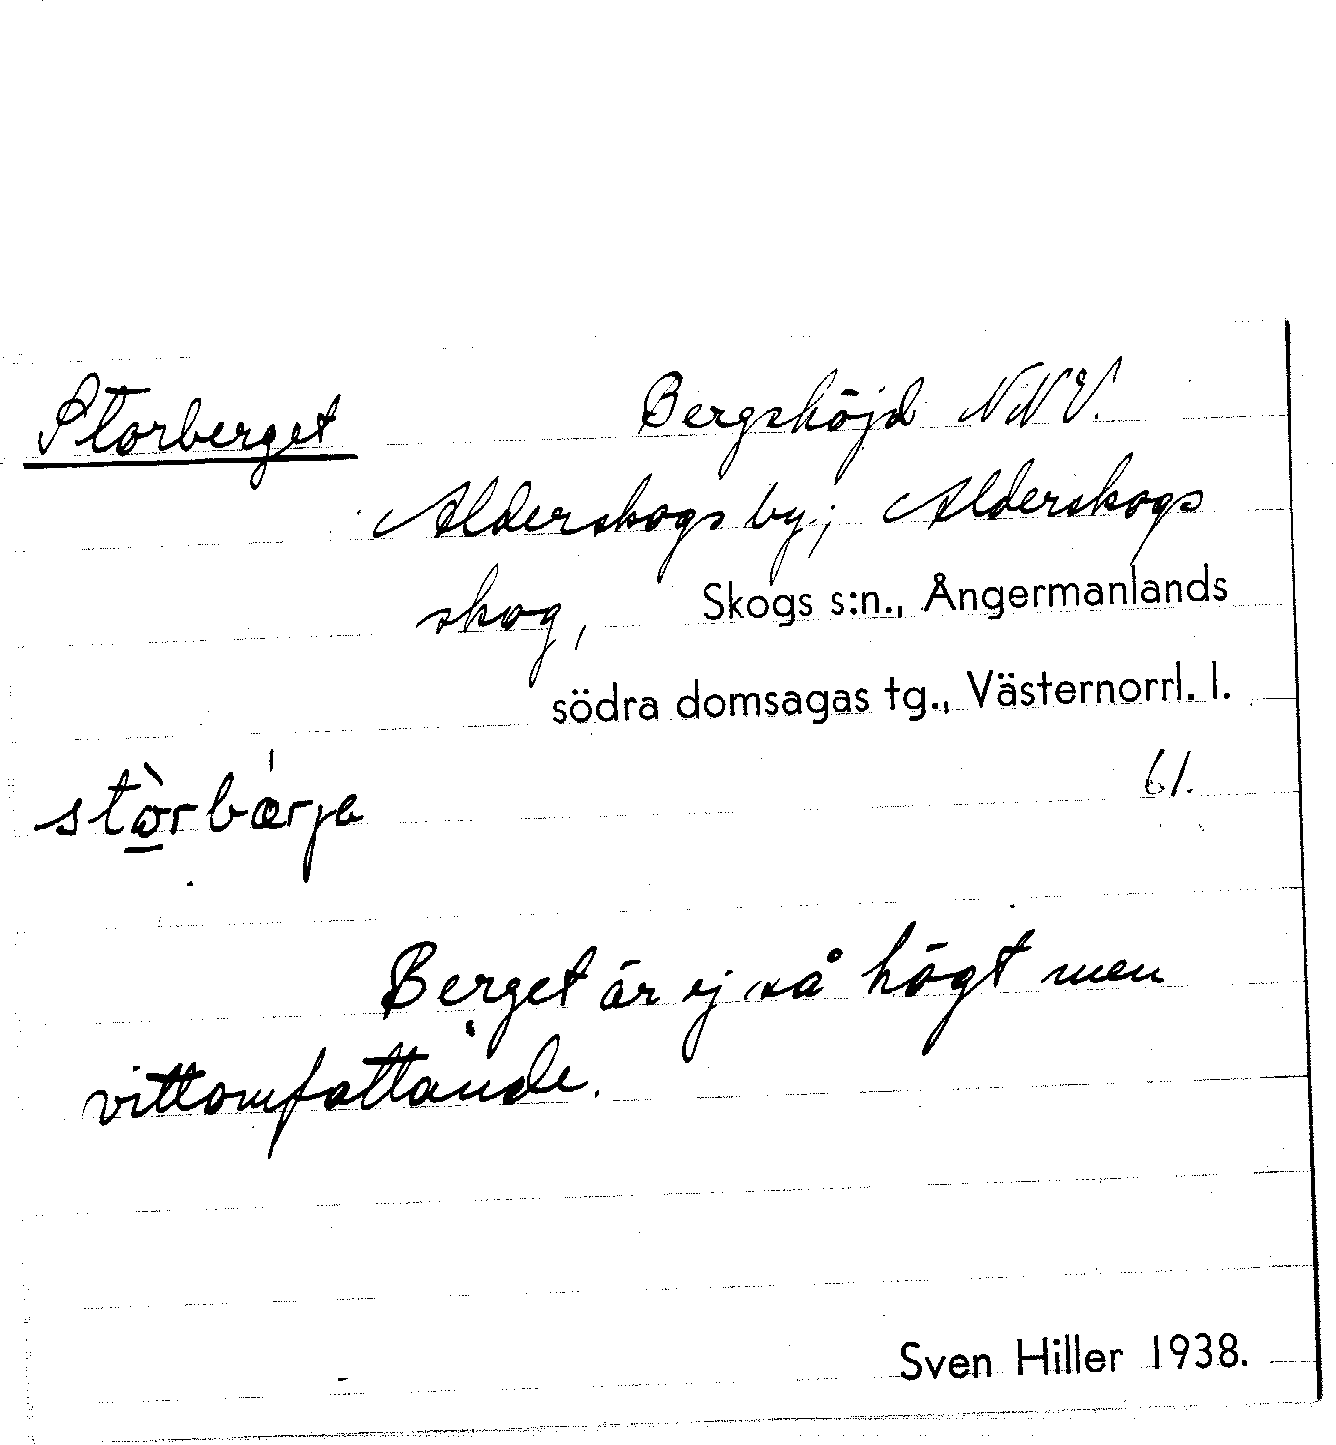 Storberget Bergshöjd NNV.
Alderskogs by; Alderskogs
skog, Skogs s:n., Ångermanlands
södra domsagas tg., Västernorrl. l.
61.
Berget är ej så högt men
vittomfattande.
Sven Hiller 1938.